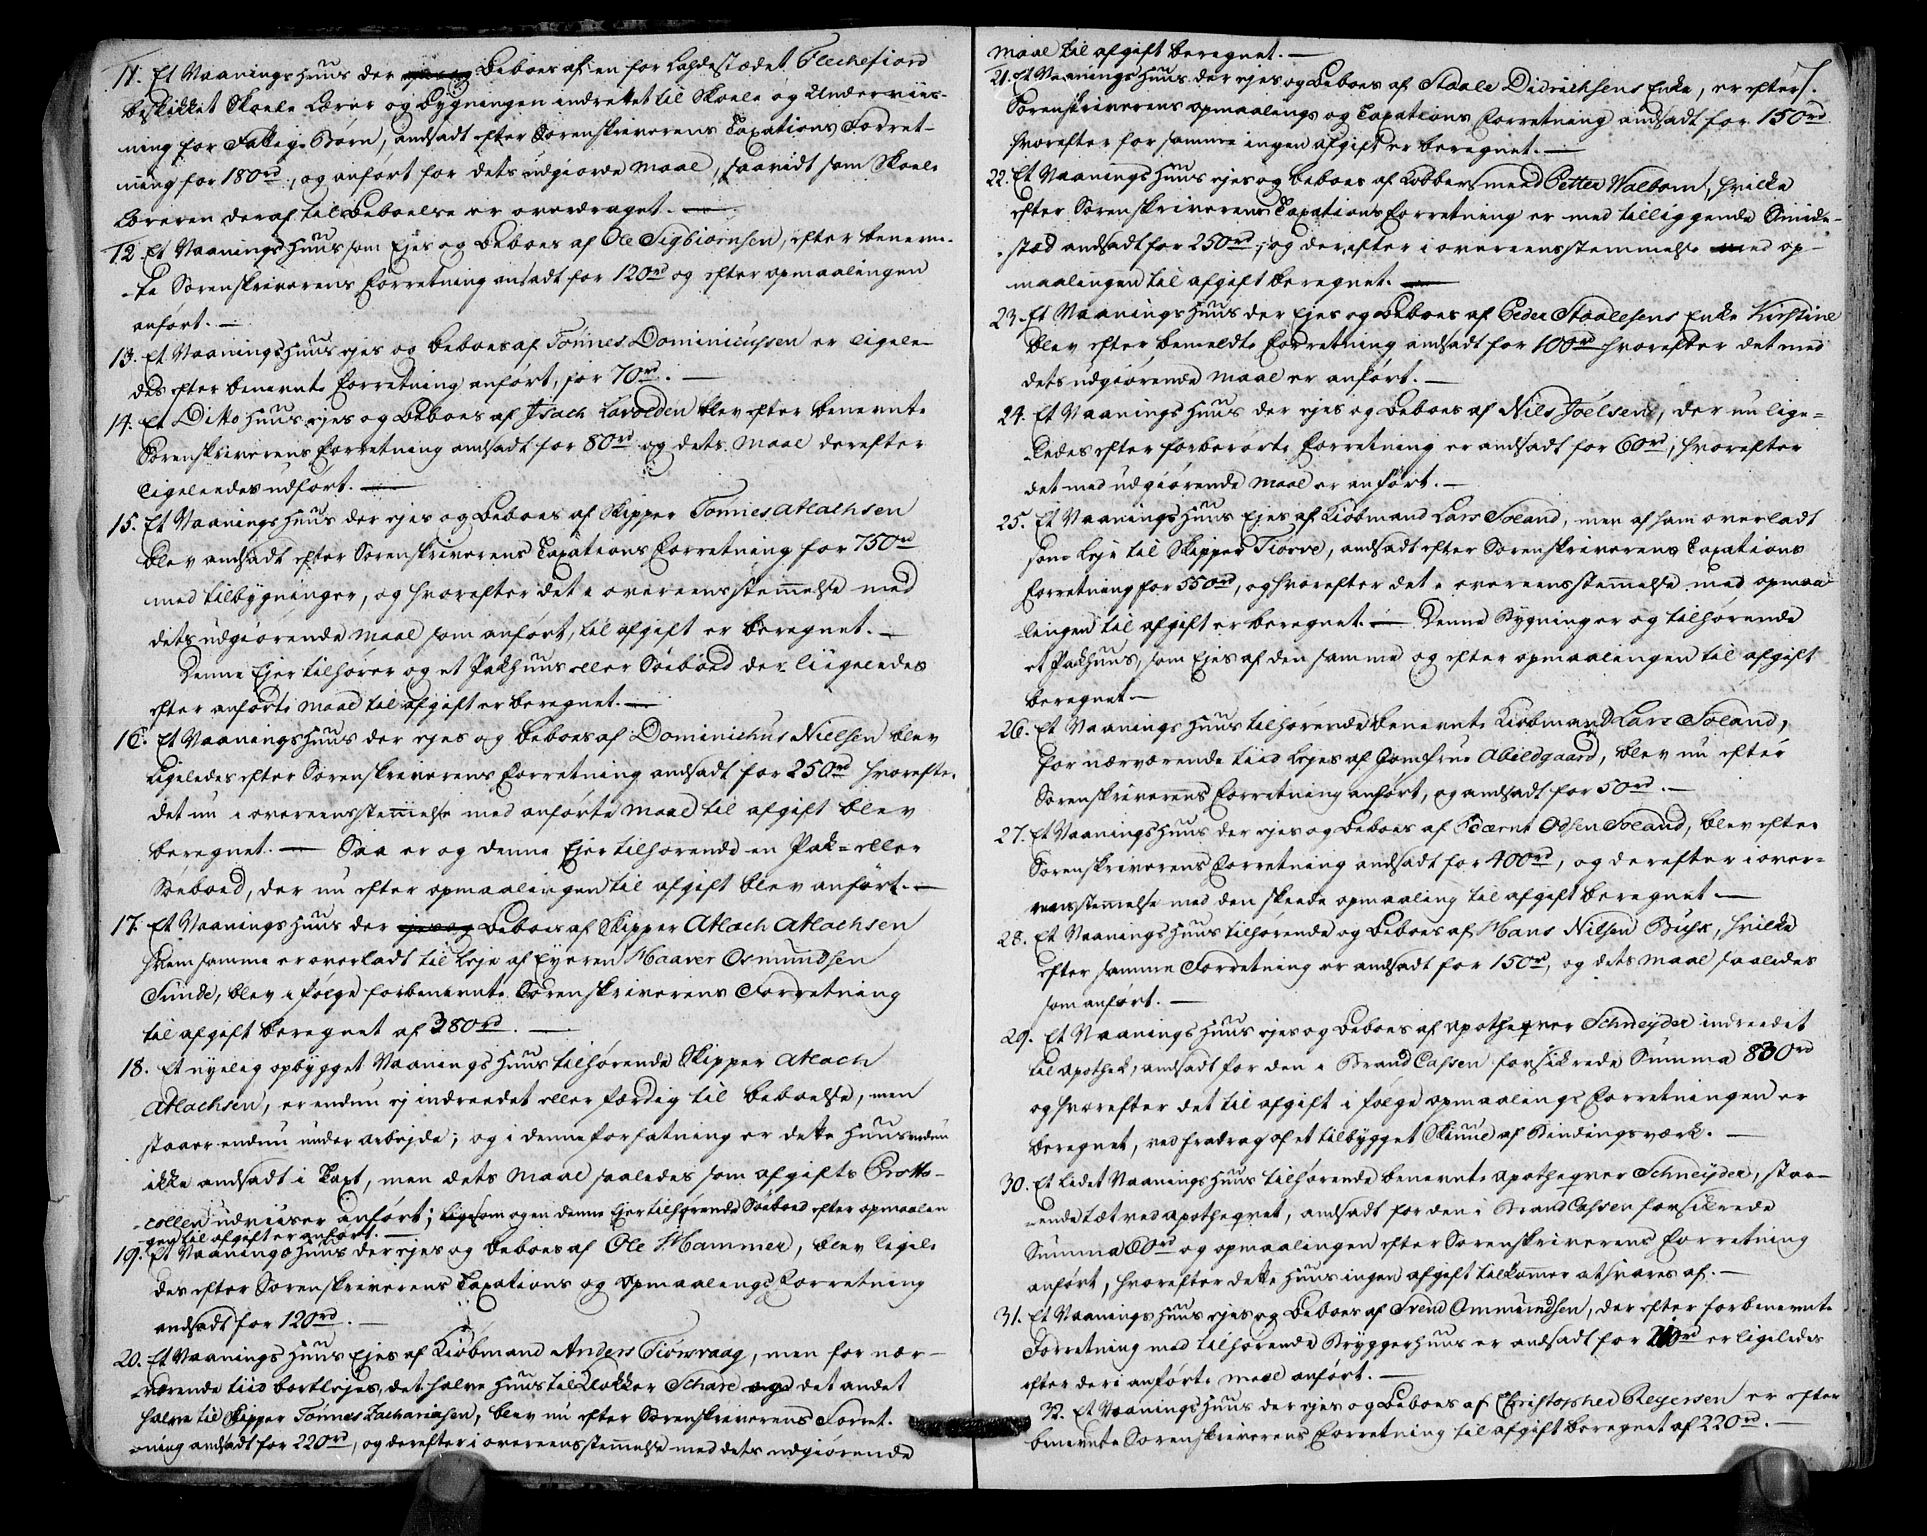 11. Et Vaanings Huus der ejes og beboes af en for Ladestædet Flechefiord
beskikket Skoele Lærer og Bygningen indrettet til Skoele og Underviis-
ning for Fattige Børn, andsadt efter Sorenskriverens Taxations Forret-
ning for 180rd, og anført for dets udgiorde Maal, saavidt som Skole
Læreren deraf til Beboelse er overdraget. —
12. Et Vaanings Huus som Ejes og Beboes af Ole Sigbiørnsen, efter benevn-
te Sorenskriverens Forretning ansadt for 120rd og efter opmaalingen
anført. —
13. Et Vaanings Huus ejes og beboes af Tønnes Dominicussen er ligele-
des efter benevnte Forretning anført, for 70rd. —
14. Et Ditto Huus ejes og Beboes af Isach Lavolden blev efter benevnte
Sorenskriverens Forretning andsadt for 80rd og dets Maal derefter
ligeleedes udført. —
15. Et Vaanings Huus der ejes og Beboes af Skipper Tønnes Atlachsen
blev andsadt efter Sorenskriverens Taxations Forretning for 750rd
med tilbygninger, og hvorefter det i overeensstemmelse med
dets udgiørende Maal som anført, til afgift er beregnet. —
Denne Ejer tilhører og et Pakhuus eller Søeboed der liigeledes
efter anførte Maal til afgift er beregnet. —
16. Et Vaanings Huus der ejes og beboes af Dominichus Nielsen blev
Ligeledes efter Sorenskriverens Forretning andsadt for 250rd hvorefter
det nu i overeensstemmelse med anførte Maal til afgift blev
beregnet. — Saa er og denne Ejer tilhørende en Pak- eller
Søeboed, der nu efter opmaalingen til afgift blev anført. —
17. Et Vaanings Huus der ejes og Beboes af Skipper Atlach Atlachsen
hvem samme er overladt til Leje af Eyeren Haaver Osmundsen
Sunde, blev i følge forbenevnte Sorenskriverens Forretning
til afgift beregnet af 380rd. —
18. Et nyelig opbygget Vaanings Huus tilhørende Skipper Atlach
Atlachsen, er endnu ej indreedet eller færdig til beboelse, men
staaer endnu under arbejde; og i denne forfatning er dette Huus endnu
ikke andsadt i Taxt, men dets Maal saaledes som afgifts Protto-
collen udviiser anført; ligesom og en denne Ejer tilhørende Søeboed efter opmaalin
gen til afgift er anført. —
19. Et Vaanings Huus der ejes og beboes af Ole Hammer, blev ligele
des efter Sorenskriverens Taxations og Opmaalings Forretning
andsadt for 120rd. —
20. Et Vaanings Huus Ejes af Kiøbmand Anders Tiørsvaag, men for nær-
værende tiid bortlejes, det halve Huus til Klokker Schare og det andet
halve til Skipper Tønnes Zachariasen, blev nu efter Sorenskriverens Forret-
ning andsadt for 220rd, og derefter i overeensstemmelse med dets udgiørende
7.
Maal til afgift beregnet. —
21. Et Vaanings Huus der ejes og beboes af Staale Didrichsens Enke, er efter
Sorenskriverens opmaalings og Taxations Forretning andsadt for 150rd
hvorefter for samme ingen afgift er beregnet. —
22. Et Vaanings Huus ejes og beboes af Kobbersmed Petter Walbom, hvilke
efter Sorenskriverens Taxations Forretning er med tilliggende Smide-
sted andsadt for 250rd, og derefter i overeensstemmelse med op-
maalingen til afgift beregnet. —
23. Et Vaanings Huus der Ejes og Beboes af Peder Staalesens Enke Kirstine
blev efter bemeldte Forretning andsadt for 100rd hvorefter det med
dets udgiørende Maal er anført. —
24. Et Vaanings Huus der ejes og Beboes af Nils Joelsen, der nu lige-
ledes efter forberørte Forretning er andsadt for 60rd, hvorefter
det med udgiørende Maal er anført. —
25. Et Vaanings Huus Ejes af Kiøbmand Lars Soland, men af ham overladt
som Leje til Skipper Tiorve, andsadt efter Sorenskriverens Taxations
Forretning for 550rd, og hvorefter det i overeensstemmelse med opmaa-
lingen til afgift er beregnet. — Denne Bygning er og tilhørende
et Pakhuus, som Ejes af den samme og efter opmaalingen til afgift
beregnet —
26. Et Vaanings Huus tilhørende benevnte Kiøbmand Lars Soland,
for nærværende tiid Lejes af Jomfrue Abildgaard, blev nu efter
Sorenskriverens Forretning anført, og andsadt for 50rd. —
27. Et Vaanings Huus der ejes og Beboes af Bærnt Odsen Soland, blev efter
Sorenskriverens Forretning andsadt for 400rd, og derefter i over-
eensstemmelse med den skeede opmaaling til afgift beregnet —
28. Et Vaanings Huus tilhørende og Beboes af Hans Nilsen Buch, hvilke
efter samme Forretning er andsadt for 150rd, og dets Maal saaledes
som anført. —
29. Et Vaanings Huus ejes og Beboes af Apotheqver Schneyder indreedet
til Apothek, andsadt for den i Brand Cassen forsikrede Summa 830rd
og hvorefter det til afgift i følge opmaalings Forretningen er
beregnet, ved fradrag af et tilbygget Skuur af Bindingsværk. —
30. Et Lidet Vaanings Huus tilhørende benevnte Apotheqver Schneyder, staa-
ende tæt ved Apotheqvet, andsadt for den i Brand Cassen forsikrede
Summa 60rd og opmaalingen efter Sorenskriverens Forretning
anført, hvorefter dette Huus ingen afgift tilkommer at svares af. —
31. Et Vaanings Huus ejes og Beboes af Svend Ommundsen, der efter forbenevnte
Forretning med tilhørende Bryggerhuus er andsadt for 210rd er ligeledes
efter deri anførte Maal anført. —
32. Et Vaanings Huus der ejes og Beboes af Christopher Reyersen er efter
benevnte Sorenskriverens Forretning til afgift beregnet af 220rd. —